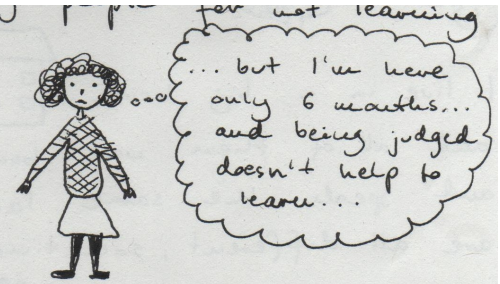 people for not learning
... but I'm here
only 6 months...
and being judged
doesn't help to
learn...